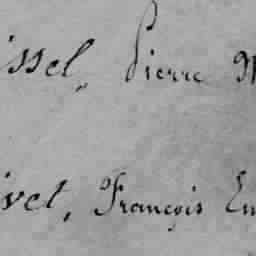 issel, Pierre M
ivet, François Em